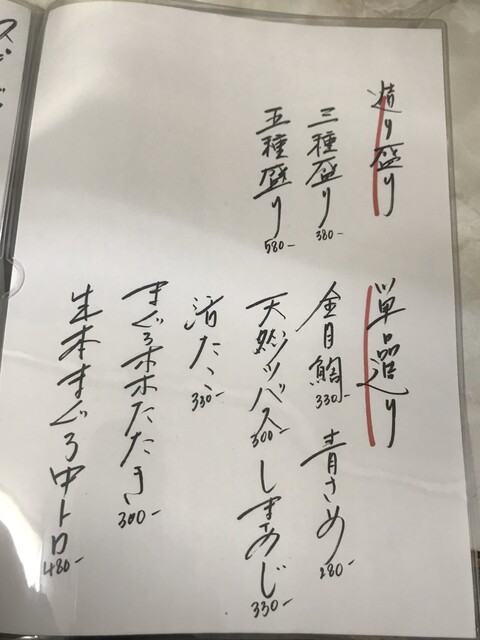 造り盛り
三種盛り 380-
五種盛り 580-
単品造り
金目鯛 330-
青さめ 280-
天然ツバス 300-
しまあじ 330-
活たこ 330-
まぐろホホたたき 300-
生本まぐろ中トロ 480-